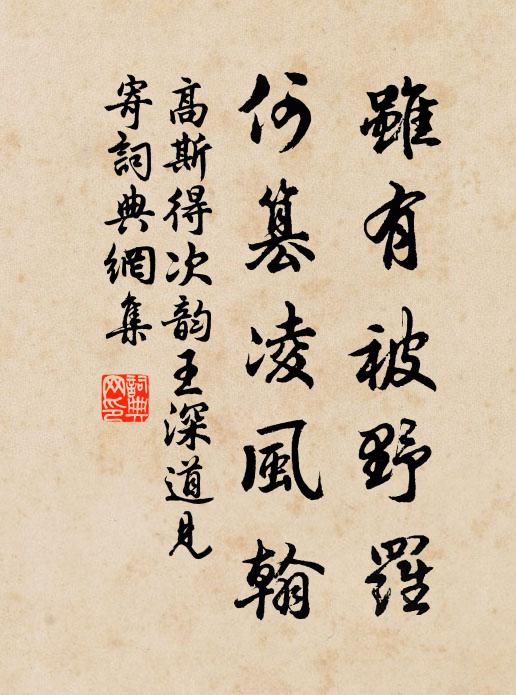 雖有被野羅
何篡凌風翰
高斯得次韵王深道見
寄詞典網集
詞典網印